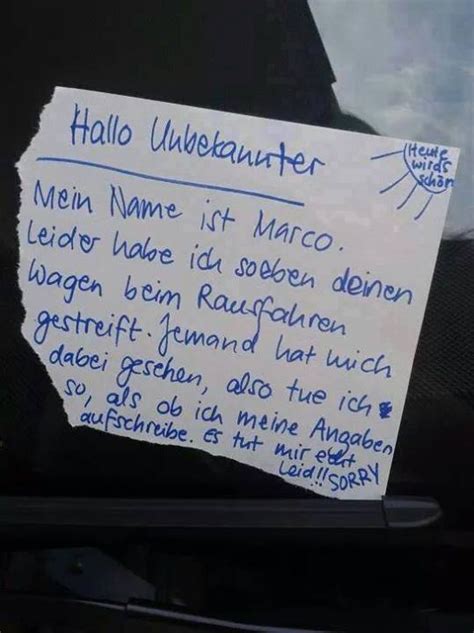 Hallo Unbekannter
Heute
wirds
schön
Mein Name ist Marco.
Leider habe ich soeben deinen
Wagen beim Rausfahren
gestreift. Jemand hat mich
dabei gesehen, also tue ich
so, als ob ich meine Angaben
aufschreibe. Es tut mir echt
Leid!! SORRY